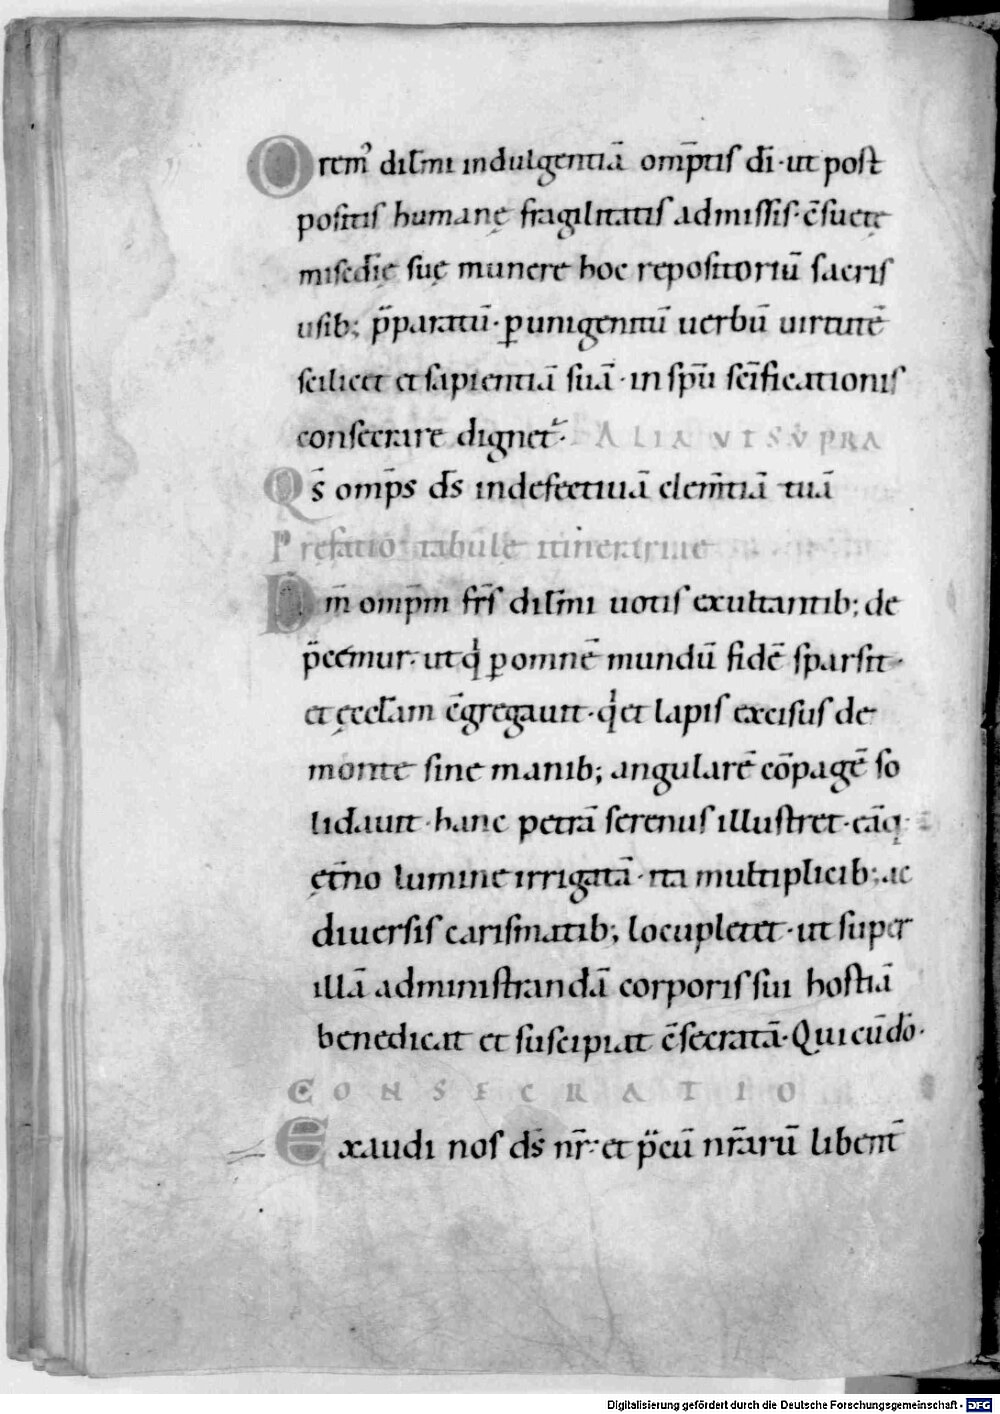 Orem᾽ dil̅mi indulgentiā omp̅tis dī · ut post
positis humanę fragilitatis admissis · c̄suetę
misc̄dię suę munere hoc repositoriū sacris
usib; p̄paratū · ꝑ unigenitū uerbū uirtutē
scilicet et sapientiā suā · in sp̄u sc̄ificationis
consecrare dignet᷑ · ALIA VT SVPRA
Qs̄ omp̄s ds̄ indefectiuā clem̄tiā tuā
Prefatio tabulę itinerarię
Dm̄ omp̄m fr̄s dil̅mi uotis exultantib; de
p̄cemur · ut qi ꝑ omnē mundū fidē sparsit ·
et ęccl̅am c̄gregauit · qi et lapis excisus de
monte sine manib; angularē cōpagē so
lidauit · hanc petrā serenus illustret · eāq;
ęt̄no lumine irrigatā · ita multiplicib; ac
diuersis carismatib; locupletet · ut super
illā administrandā corporis sui hostiā
benedicat et suscipiat c̄secratā · Qui cū dō ·
CONSECRATIO
Exaudi nos ds̄ nr̄ · et p̄cū nr̄arū libent̄
Digitalisierung gefördert durch die Deutsche Forschungsgemeinschaft - DFG